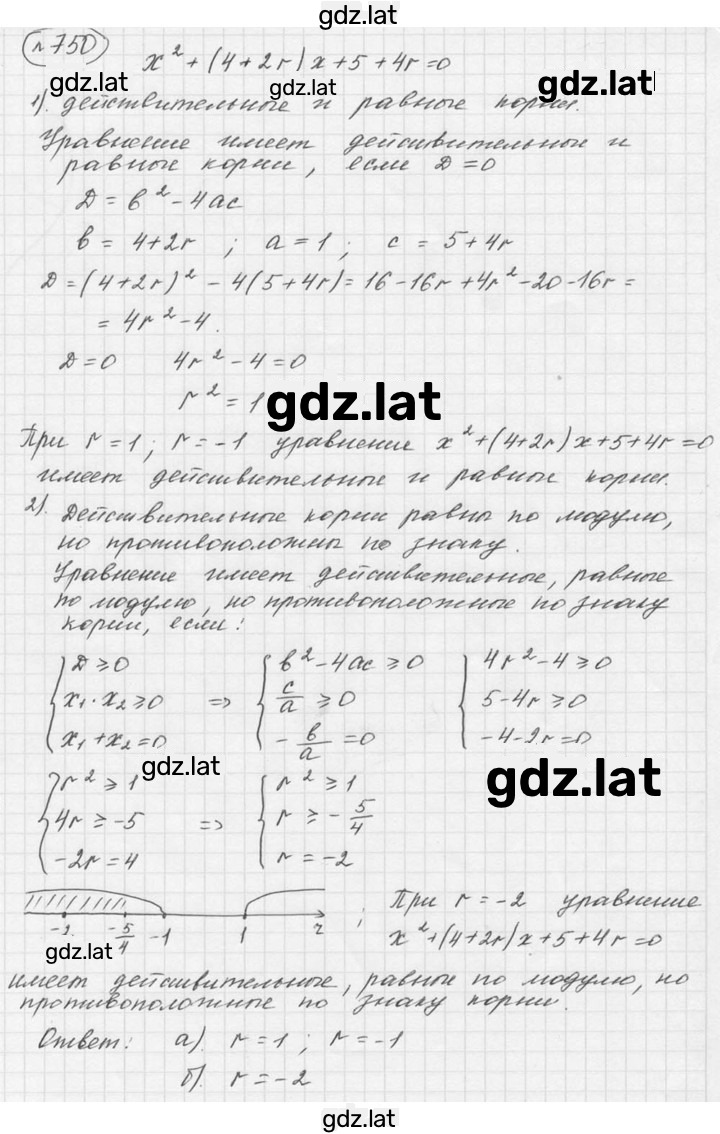 gdz.lat
№750
x² + (4+2r)x + 5 + 4r = 0
gdz.lat gdz.lat gdz.lat
1). действительные и равные корни.
Уравнение имеет действительные и
равные корни, если D = 0
D = b² - 4ac
b = 4+2r ; a = 1 ; c = 5+4r
D = (4+2r)² - 4(5+4r) = 16 - 16r + 4r² - 20 - 16r =
= 4r² - 4.
D = 0 4r² - 4 = 0
r² = 1
gdz.lat
При r = 1 ; r = -1 уравнение x² + (4+2r)x + 5 + 4r = 0
имеет действительные и равные корни.
2). Действительные корни равны по модулю,
но противоположны по знаку.
Уравнение имеет действительные, равные
по модулю, но противоположные по знаку
корни, если:
{ D ≥ 0 { b² - 4ac ≥ 0 { 4r² - 4 ≥ 0
x₁ · x₂ ≥ 0 => c/a ≥ 0 5 - 4r ≥ 0
x₁ + x₂ = 0 - b/a = 0 -4 - 2r = 0
gdz.lat gdz.lat
{ r² ≥ 1 { r² ≥ 1
4r ≥ -5 => r ≥ - 5/4
-2r = 4 r = -2
-2 -5/4 -1 1 r ; При r = -2 уравнение
gdz.lat
x² + (4+2r)x + 5 + 4r = 0
имеет действительные, равные по модулю, но
противоположные по знаку корни.
Ответ: а). r = 1 ; r = -1
б). r = -2
gdz.lat